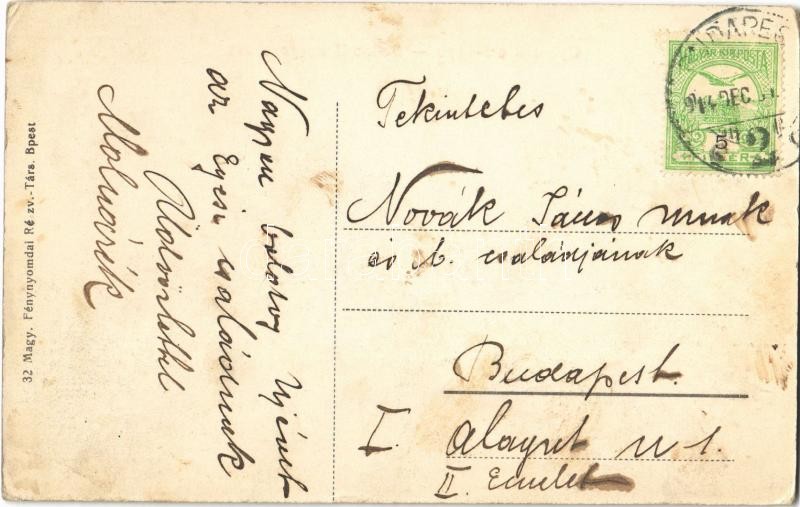 Nagyon boldog Újévet
az Egész családnak
Üdvözlettel
Molnárék
32 Magy. Fénynyomdai Ré zv.-Társ. Bpest
Tekintetes
Novák János urnak
és b. családjának
Budapest.
I. Alagut u 1.
II. Emelet
MAGYAR KIR. POSTA
5
914 DEC